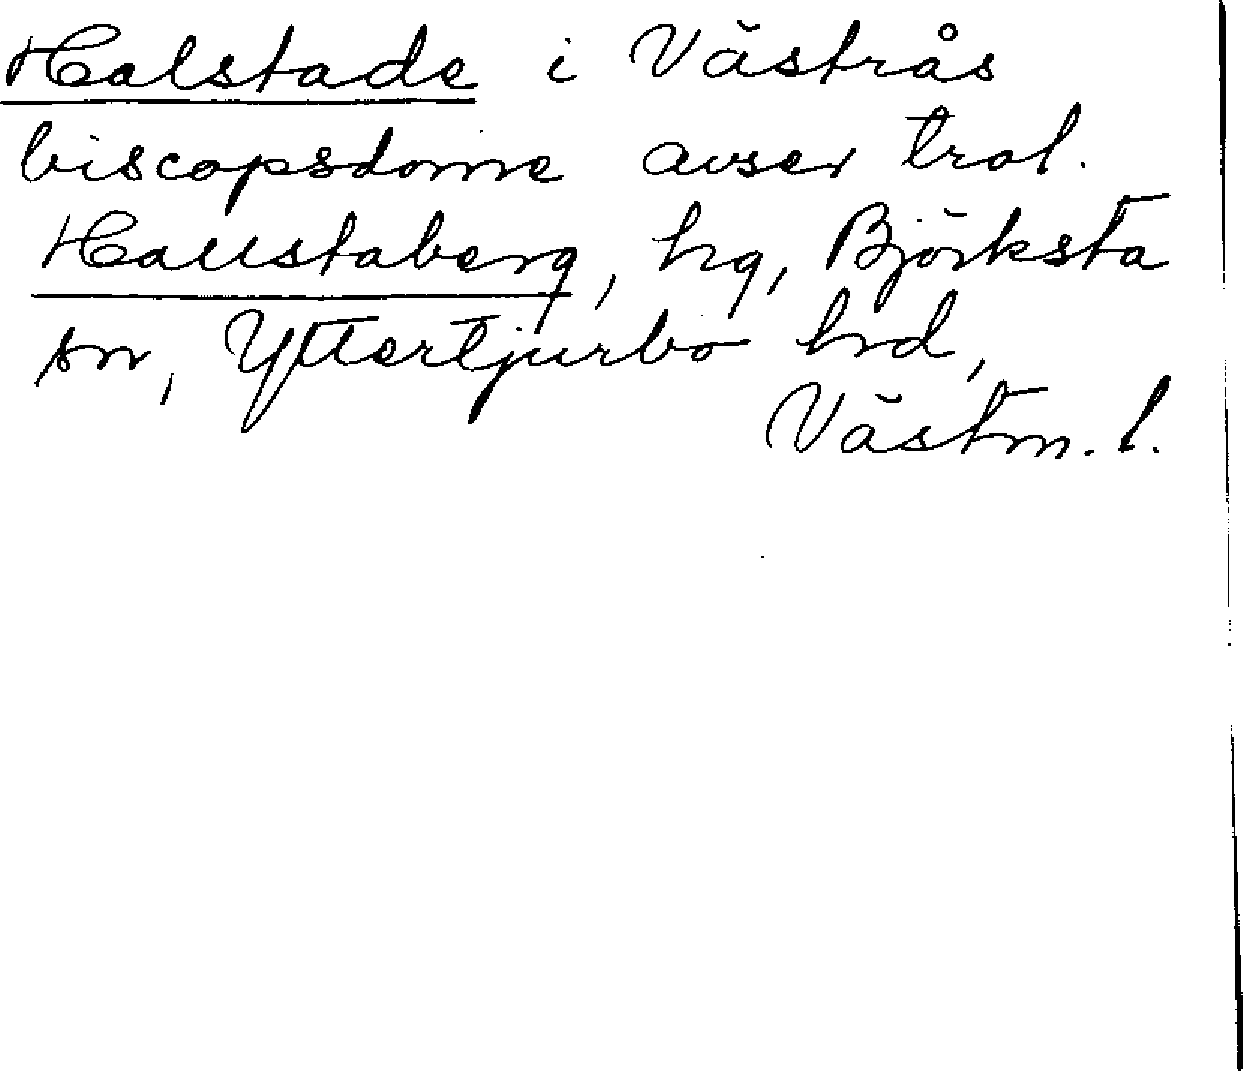 Halstade i Västrås
biscopsdome avser trol.
Hallstaberg, hg, Björksta
sn, Yttertjurbo hd,
Västm. l.